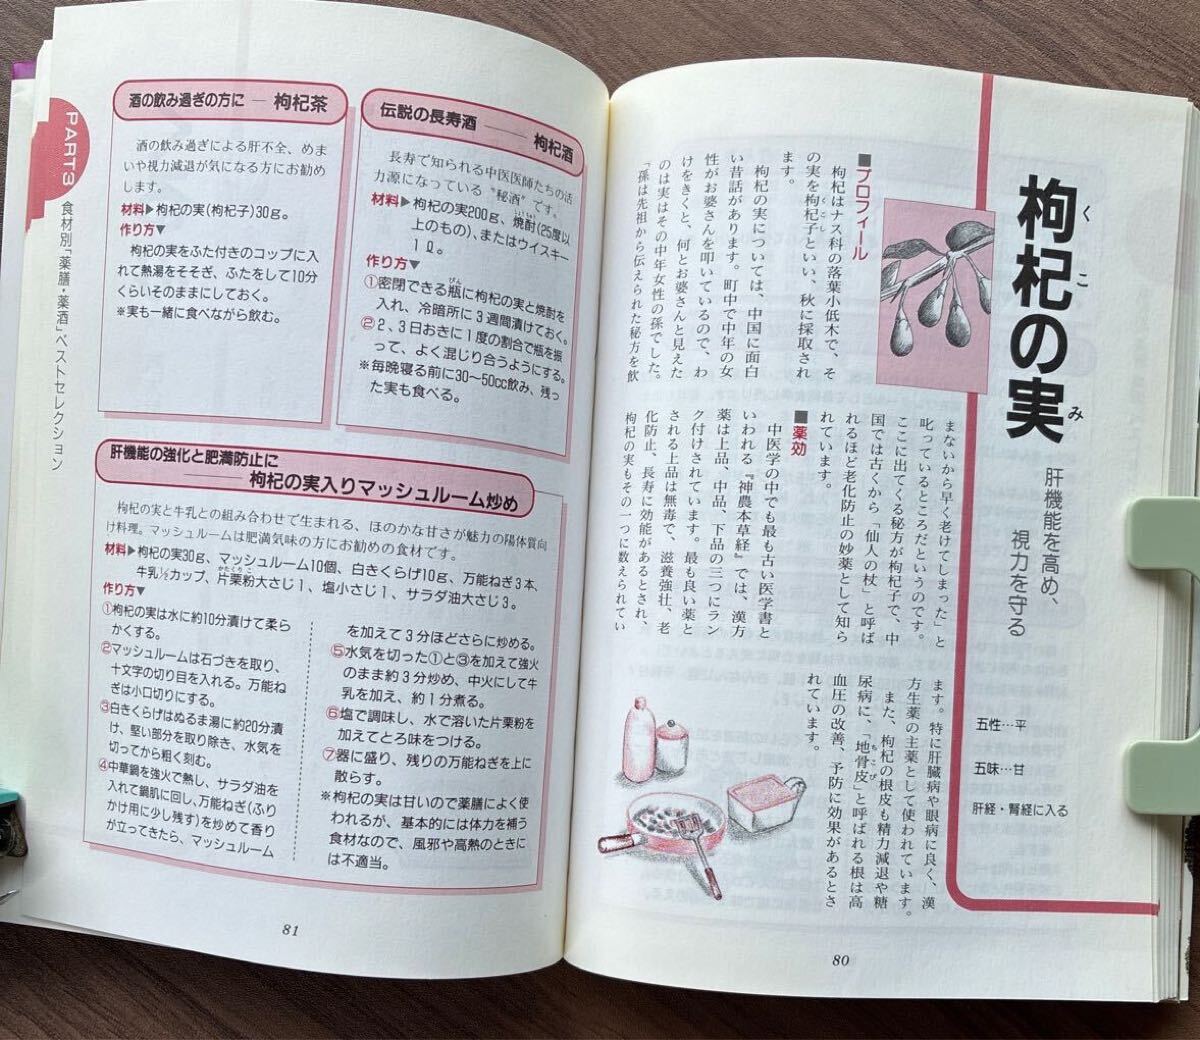 枸杞の実
くこ
み
肝機能を高め、
視力を守る
五性…平
五味…甘
肝経・腎経に入る
■プロフィール
枸杞はナス科の落葉小低木で、そ
の実を枸杞子といい、秋に採取され
くこし
ます。
枸杞の実については、中国に面白
い昔話があります。町中で中年の女
性がお婆さんを叩いているので、わ
けをきくと、何とお婆さんと見えた
のは実はその中年女性の孫でした。
「孫は先祖から伝えられた秘方を飲
まないから早く老けてしまった」と
叱っているところだというのです。
ここに出てくる秘方が枸杞子で、中
国では古くから「仙人の杖」と呼ば
れるほど老化防止の妙薬として知ら
れています。
■薬効
中医学の中でも最も古い医学書と
いわれる『神農本草経』では、漢方
薬は上品、中品、下品の三つにラン
ク付けされています。最も良い薬と
される上品は無毒で、滋養強壮、老
化防止、長寿に効能があるとされ、
枸杞の実もその一つに数えられてい
ます。特に肝臓病や眼病に良く、漢
方生薬の主薬として使われています。
また、枸杞の根皮も精力減退や糖
尿病に、「地骨皮」と呼ばれる根は高
ちこぴ
血圧の改善、予防に効果があるとさ
れています。
80
PART3
食材別「薬膳・薬酒」ベストセレクション
酒の飲み過ぎの方に ― 枸杞茶
酒の飲み過ぎによる肝不全、めま
いや視力減退が気になる方にお勧め
します。
材料▶枸杞の実(枸杞子)30g。
作り方▼
枸杞の実をふた付きのコップに入
れて熱湯をそそぎ、ふたをして10分
くらいそのままにしておく。
※実も一緒に食べながら飲む。
伝説の長寿酒 ―― 枸杞酒
長寿で知られる中医医師たちの活
力源になっている〝秘酒〟です。
材料▶枸杞の実200g、焼酎(25度以
しょうちゅう
上のもの)、またはウイスキー
1ℓ。
作り方▼
①密閉できる瓶に枸杞の実と焼酎を
びん
入れ、冷暗所に3週間漬けておく。
②2、3日おきに1度の割合で瓶を振
って、よく混じり合うようにする。
※毎晩寝る前に30〜50cc飲み、残っ
た実も食べる。
肝機能の強化と肥満防止に
―― 枸杞の実入りマッシュルーム炒め
枸杞の実と牛乳との組み合わせで生まれる、ほのかな甘さが魅力の陽体質向
け料理。マッシュルームは肥満気味の方にお勧めの食材です。
材料▶枸杞の実30g、マッシュルーム10個、白きくらげ10g、万能ねぎ3本、
牛乳½カップ、片栗粉大さじ1、塩小さじ1、サラダ油大さじ3。
かたくりこ
作り方▼
①枸杞の実は水に約10分漬けて柔ら
かくする。
②マッシュルームは石づきを取り、
十文字の切り目を入れる。万能ね
ぎは小口切りにする。
③白きくらげはぬるま湯に約20分漬
け、堅い部分を取り除き、水気を
切ってから粗く刻む。
④中華鍋を強火で熱し、サラダ油を
入れて鍋肌に回し、万能ねぎ(ふり
かけ用に少し残す)を炒めて香り
が立ってきたら、マッシュルーム
を加えて3分ほどさらに炒める。
⑤水気を切った①と③を加えて強火
のまま約3分炒め、中火にして牛
乳を加え、約1分煮る。
⑥塩で調味し、水で溶いた片栗粉を
加えてとろ味をつける。
⑦器に盛り、残りの万能ねぎを上に
散らす。
※枸杞の実は甘いので薬膳によく使
われるが、基本的には体力を補う
食材なので、風邪や高熱のときに
は不適当。
81